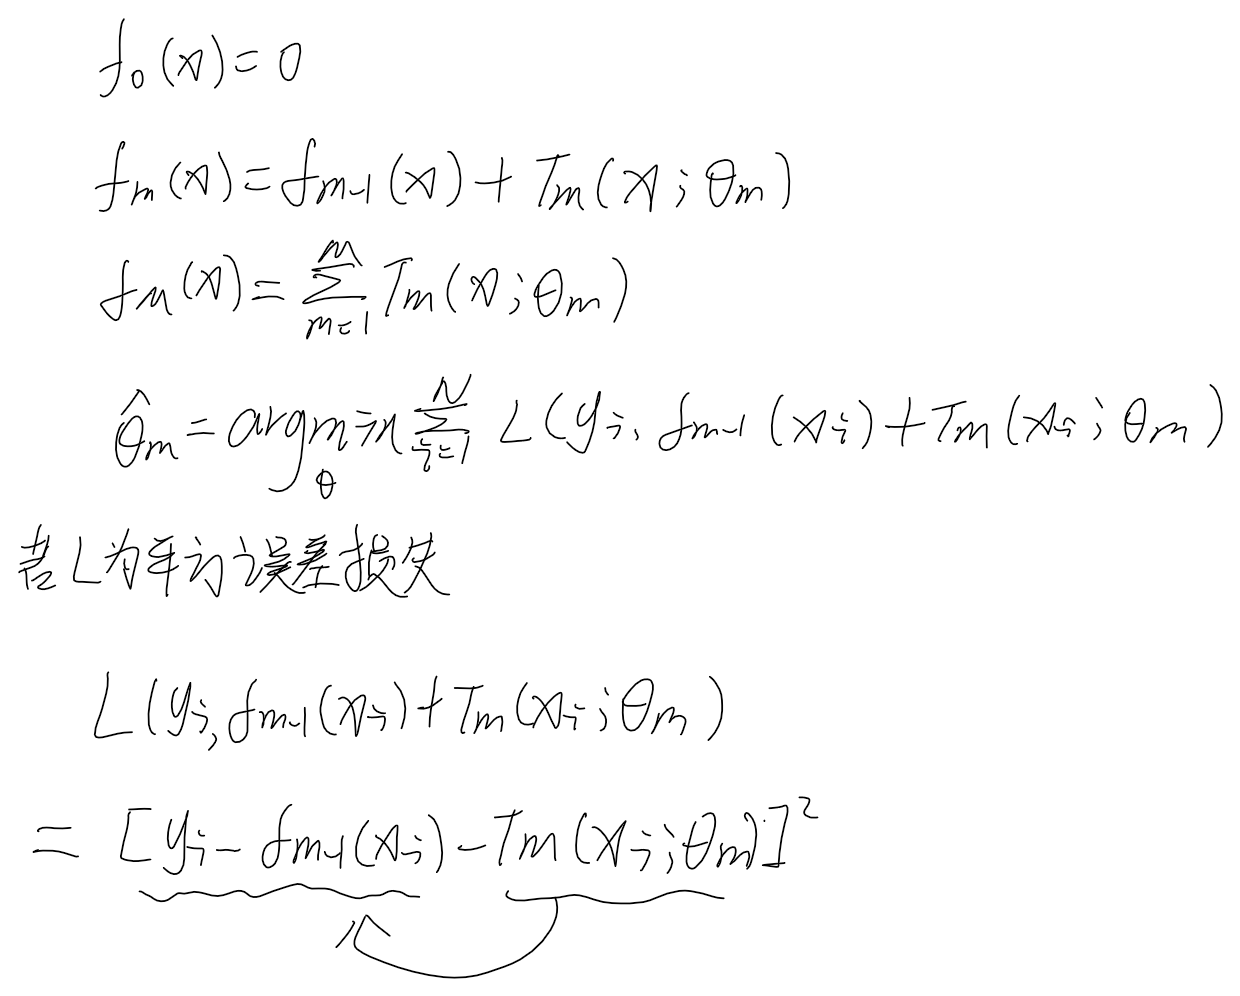 f₀(x) = 0
fₘ(x) = fₘ₋₁(x) + Tₘ(x; θₘ)
f_M(x) = ∑_{m=1}^{M} Tₘ(x; θₘ)
θ̂ₘ = argmin_θ ∑_{i=1}^{N} L(yᵢ, fₘ₋₁(xᵢ) + Tₘ(xᵢ; θₘ)
若L为平方误差损失
L(yᵢ, fₘ₋₁(xᵢ) + Tₘ(xᵢ; θₘ)
= [yᵢ - fₘ₋₁(xᵢ) - Tₘ(xᵢ; θₘ)]²